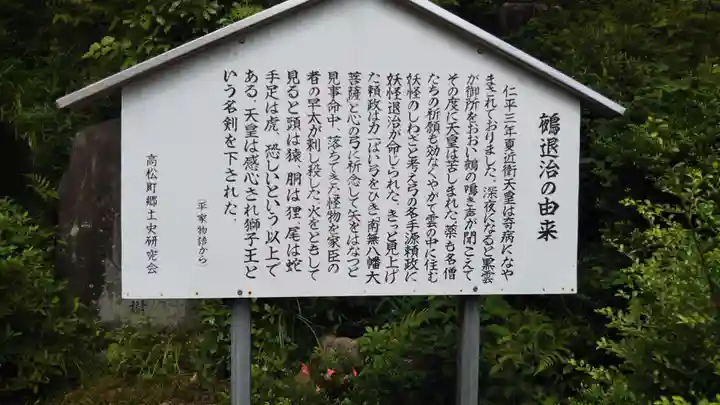 鵺退治の由来
仁平三年夏近衛天皇は奇病になや
まされておりました。深夜になると黒雲
が御所をおおい、鵺の鳴き声が聞こえて
その度に天皇は苦しまれた。薬も名僧
たちの祈願も効なくやがて雲の中に住む
妖怪のしわざと考え弓の名手源頼政に
妖怪退治が命じられた。きっと見上げ
た頼政は力一ぱい弓をひき、南無八幡大
菩薩と心の弓に祈念して矢をはなつと
見事命中、落ちてきた怪物を家臣の
者の早太が刺し殺した。火をともして
見ると頭は猿、胴は狸、尾は蛇
手足は虎、恐しいという以上で
ある。天皇は感心され獅子王と
いう名剣を下された。
(平家物語から)
高松町郷土史研究会
樹